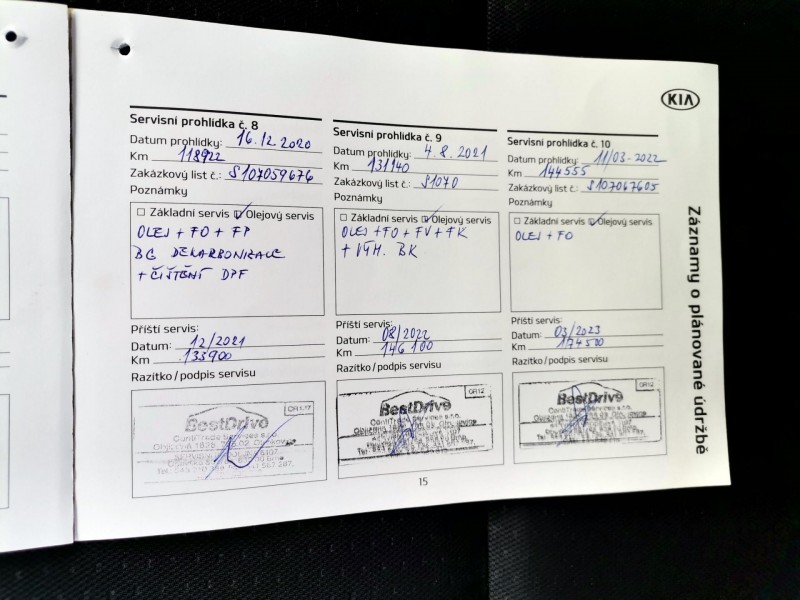 KIA
Servisní prohlídka č. 8
Datum prohlídky: 16.12.2020
Km 118922
Zakázkový list č.: S107059676
Poznámky
Základní servis Olejový servis
OLEJ + FO + FP
BG DEKARBONIZACE
+ ČIŠTĚNÍ DPF
Příští servis:
Datum: 12/2021
Km 133900
Razítko/podpis servisu
OR1.17
BestDrive
ContiTrade Services s.r.o.
Servisní prohlídka č. 9
Datum prohlídky: 4.8.2021
Km 131140
Zakázkový list č.: S1070
Poznámky
Základní servis Olejový servis
OLEJ + FO + FV + FK
+ VÝM. BK
Příští servis:
Datum: 08/2022
Km 146100
Razítko/podpis servisu
OR12
BestDrive
ContiTrade Services s.r.o.
Servisní prohlídka č. 10
Datum prohlídky: 11/03-2022
Km 144555
Zakázkový list č.: S107067605
Poznámky
Základní servis Olejový servis
OLEJ + FO
Příští servis:
Datum: 03/2023
Km 174500
Razítko/podpis servisu
OR12
BestDrive
ContiTrade Services s.r.o.
Záznamy o plánované údržbě
15